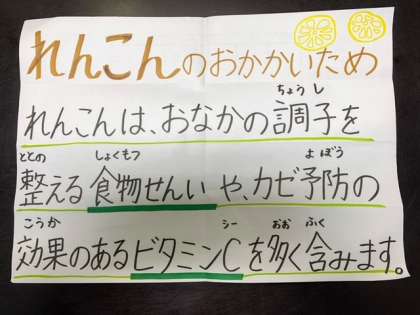 れんこんのおかかいため
れんこんは、おなかの調子を
ちょうし
整える食物せんいや、カゼ予防の
ととの しょくもつ よぼう
効果のあるビタミンCを多く含みます。
こうか シー おお ふく